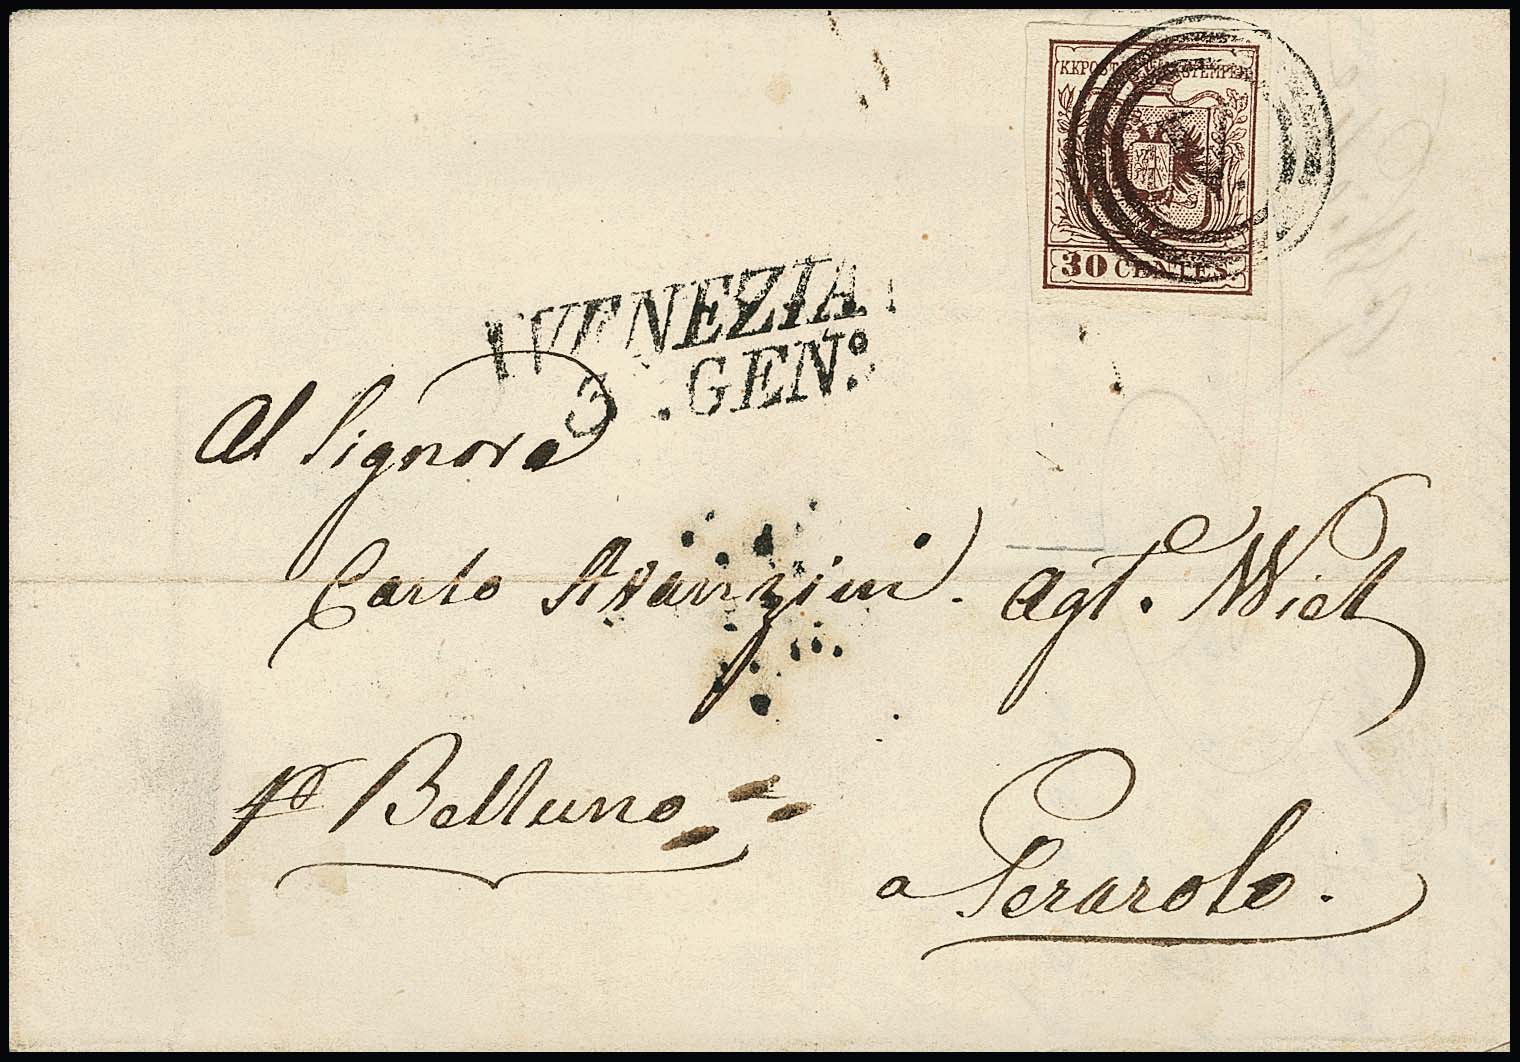 KKPOST STEMPEL
30 CENTES.
VENEZIA
3 .GEN:
Al Signore
Carlo Avanzini. Agt. Wiel
pr Belluno
a Perarolo.